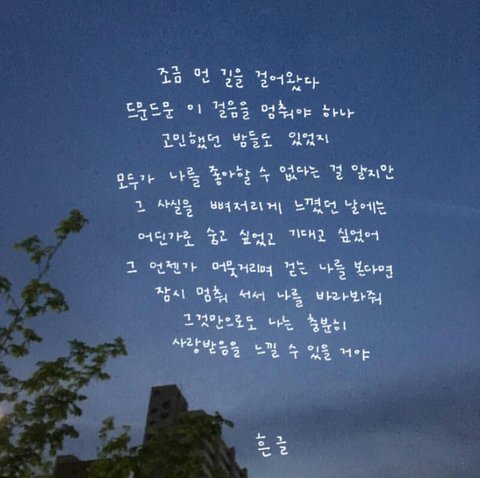 조금 먼 길을 걸어왔다
드문드문 이 걸음을 멈춰야 하나
고민했던 밤들도 있었지
모두가 나를 좋아할 수 없다는 걸 알지만
그 사실을 뼈저리게 느꼈던 날에는
어딘가로 숨고 싶었고 기대고 싶었어
그 언젠가 머뭇거리며 걷는 나를 본다면
잠시 멈춰 서서 나를 바라봐줘
그것만으로도 나는 충분히
사랑받음을 느낄 수 있을 거야
흔글